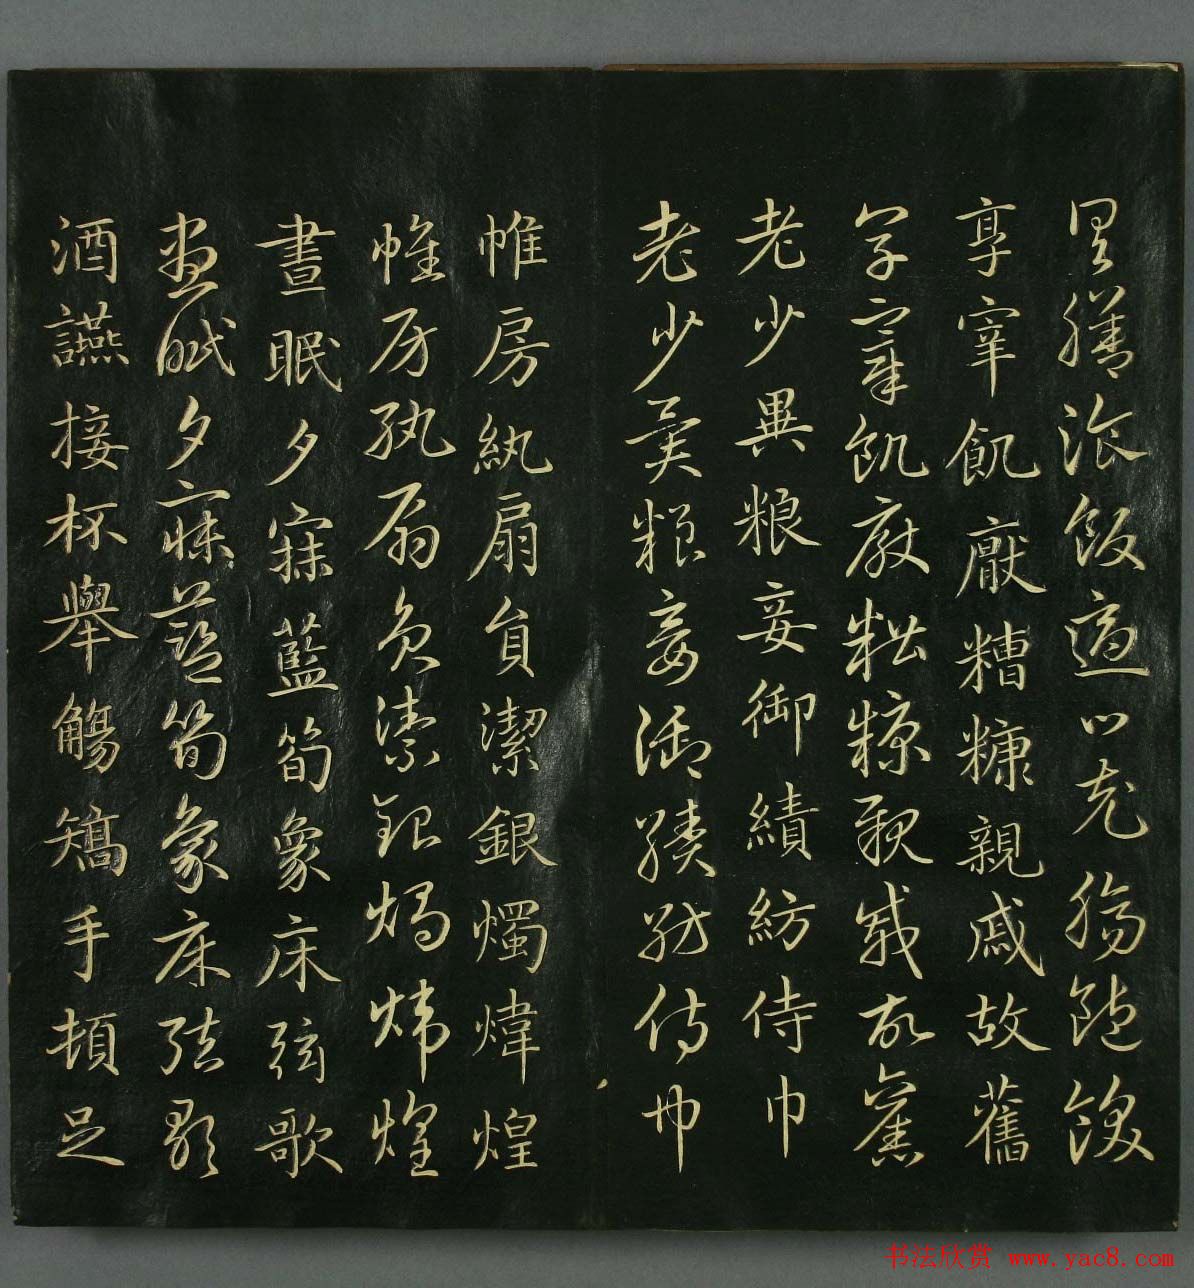 具膳飡飯適口充腸飽飫
享宰飢厭糟糠親戚故舊
享宰飢厭糟糠親戚故舊
老少異粮妾御績紡侍巾
老少異粮妾御績紡侍巾
帷房紈扇員潔銀燭煒煌
帷房紈扇員潔銀燭煒煌
晝眠夕寐藍筍象床弦歌
晝眠夕寐藍筍象床弦歌
酒讌接杯舉觴矯手頓足
书法欣赏 www.yac8.com